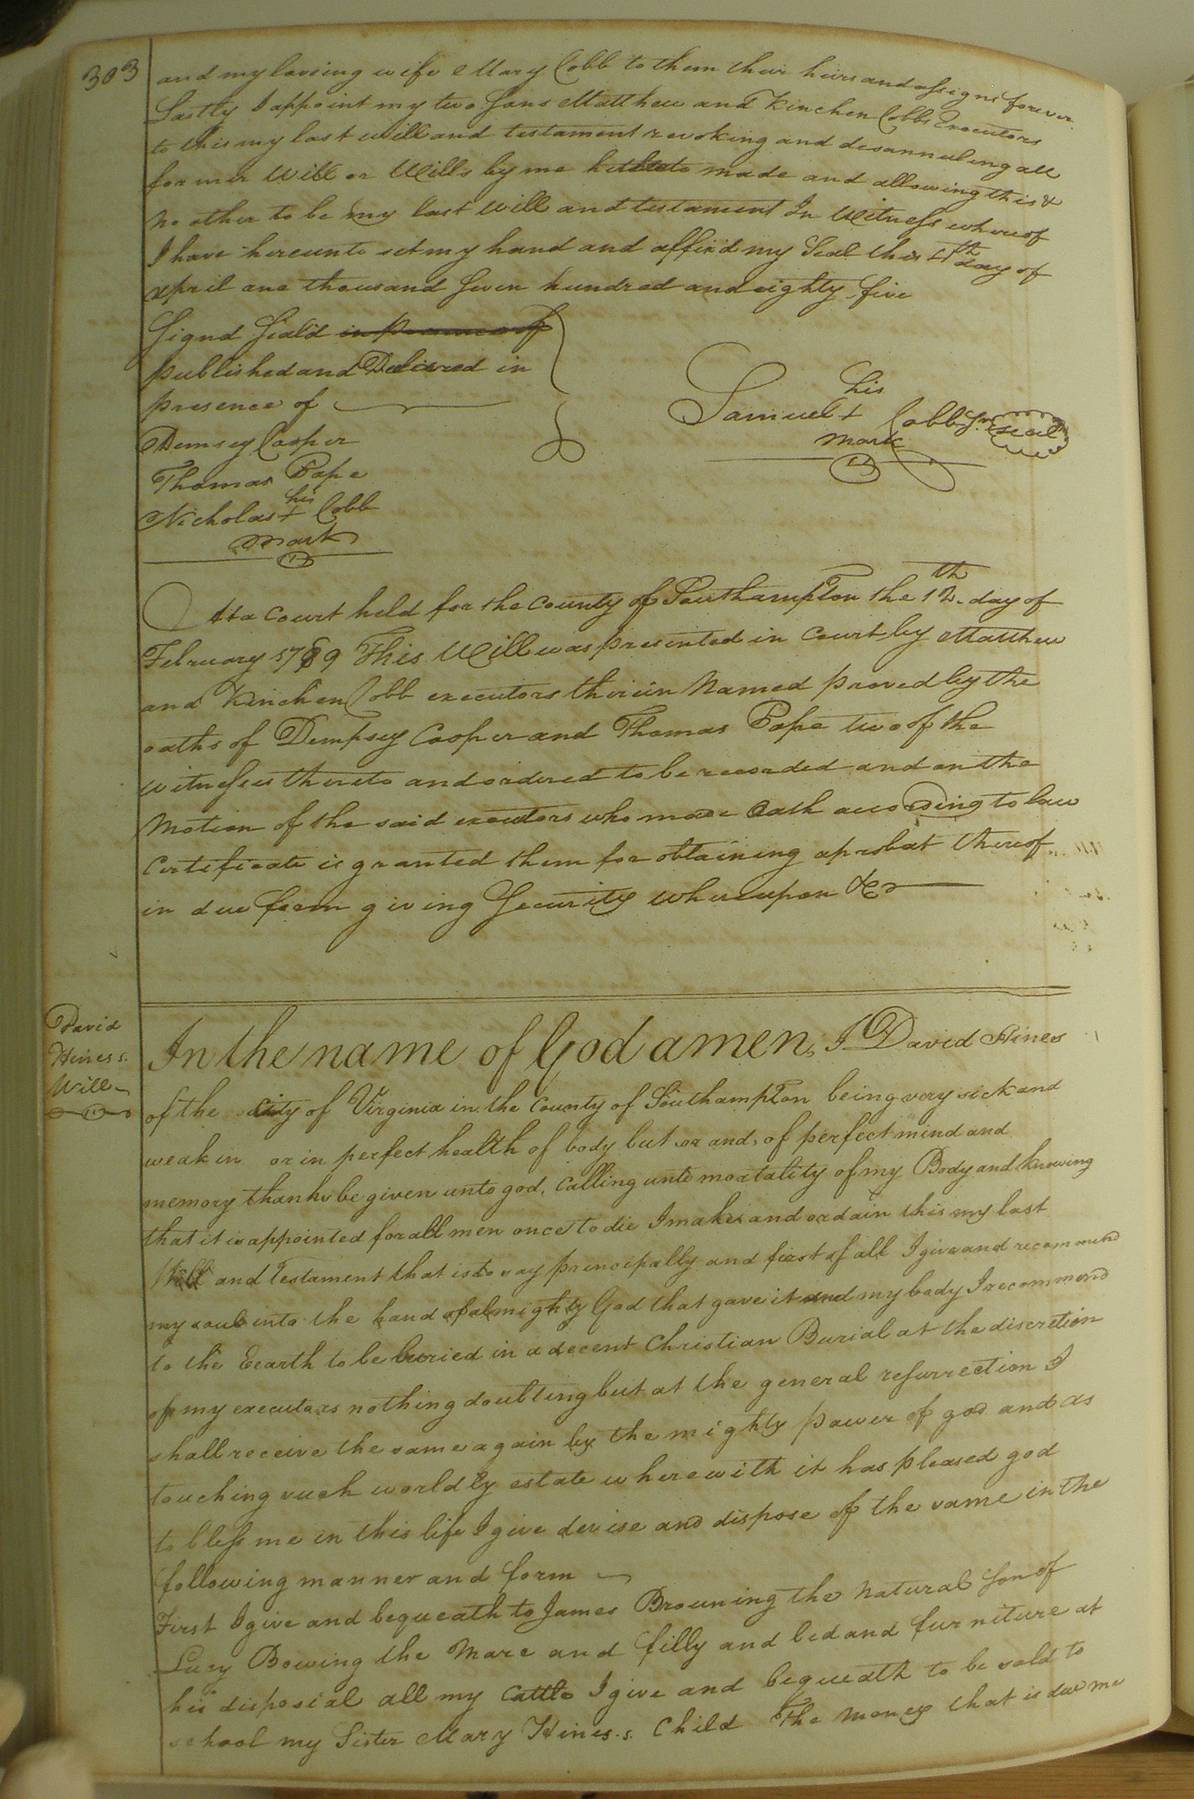 303
and my loving wife Mary Cobb to them their heirs and assigns forever.
Lastly I appoint my two Sons Matthew and Kinchen Cobb Executors
to this my last will and testament revoking and disannuling all
former Will or Wills by me hitherto made and allowing this &
no other to be my last Will and testament In Witness whereof
I have hereunto set my hand and affixd my Seal this 4th day of
april one thousand Seven hundred and eighty five
Signd Seald in presence of
published and Delivered in
presence of
Demsey Cooper
Thomas Pope
his
Nicholas + Cobb
mark
his
Samuel + Cobb Snr seal
mark
At a Court held for the County of Southampton the 12th day of
February 1789 This Will was presented in Court by Matthew
and Kinchen Cobb executors therein Named proved by the
oaths of Dempsey Cooper and Thomas Pope two of the
witnesses thereto and ordered to be recorded and on the
Motion of the said executors who made Oath according to law
Certificate is granted them for obtaining a probat thereof
in due form giving Security whereupon &c
David
Hines s.
Will
In the name of God amen, I David Hines
of the city of Virginia in the County of Southampton being very sick and
weak in or in perfect health of body but or and, of perfect mind and
memory thanks be given unto god, Calling unto mortality of my Body and knowing
that it is appointed for all men once to die I make and ordain this my last
Will and Testament that is to say principally and first of all I give and recommend
my soul into the hand of almighty God that gave it and my body I recommend
to the Earth to be buried in a decent Christian Burial at the discretion
of my executors nothing doubting but at the general resurrection I
shall receive the same again by the mighty power of god and as
touching such worldly estate wherewith it has pleased god
to bless me in this life I give devise and dispose of the same in the
following manner and form
First I give and bequeath to James Browning the Natural Son of
Lucy Bowing the Mare and filly and bed and furniture at
his disposial all my Cattle I give and bequeath to be sold to
school my Sister Mary Hines.s. Child The Money that is due me